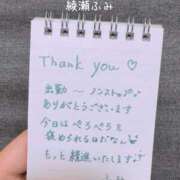 綾瀬ふみ
Thank you ♡
出勤 〜 ノンストップ
ありがとうございます
今日は ぺろぺろ と
褒められる
もっと 精進いたします♪